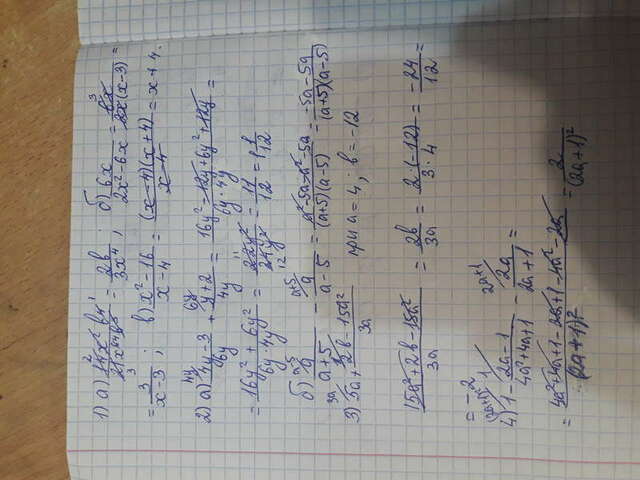 1) а) 14x² b⁴ / 21x⁶b³ = 2b / 3x⁴ ; б) 6x / 2x²-6x = 6x / 2x(x-3) =
= 3 / x-3 ; в) x²-16 / x-4 = (x-4)(x+4) / x-4 = x+4.
2) а) 4y-3 / 6y + y+2 / 4y = 16y²-12y+6y²+12y / 6y·4y =
= 16y²+6y² / 6y·4y = 22y² / 24y² = 11 / 12 = 1 1/12
б) a / a+5 - a / a-5 = a²-5a-a²-5a / (a+5)(a-5) = -5a-5a / (a+5)(a-5)
3) 5a + 2b-15a² / 3a при a=4; b=-12
15a²+2b-15a² / 3a = 2b / 3a = 2·(-12) / 3·4 = -24 / 12 =
= -2
4) 1 - 2a-1 / 4a²+4a+1 - 2a / 2a+1 =
= 4a²+4a+1-2a+1-4a²-2a / (2a+1)² = 2 / (2a+1)²